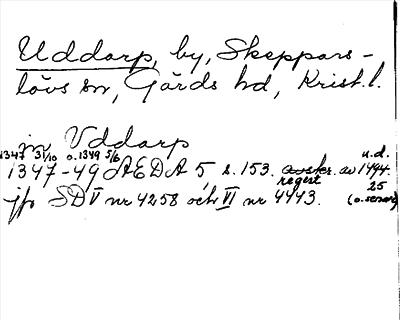 Uddarp, by, Skeppars-
lövs sn, Gärds hd, Krist. l.
in Vddarp
1347 31/10 o. 1349 5/6 u.d.
1347-49 ÆDA 5, s. 153. avskr. av 1494.
regest 25
jfr SD V nr 4258 och VI nr 4443. (o. senare)